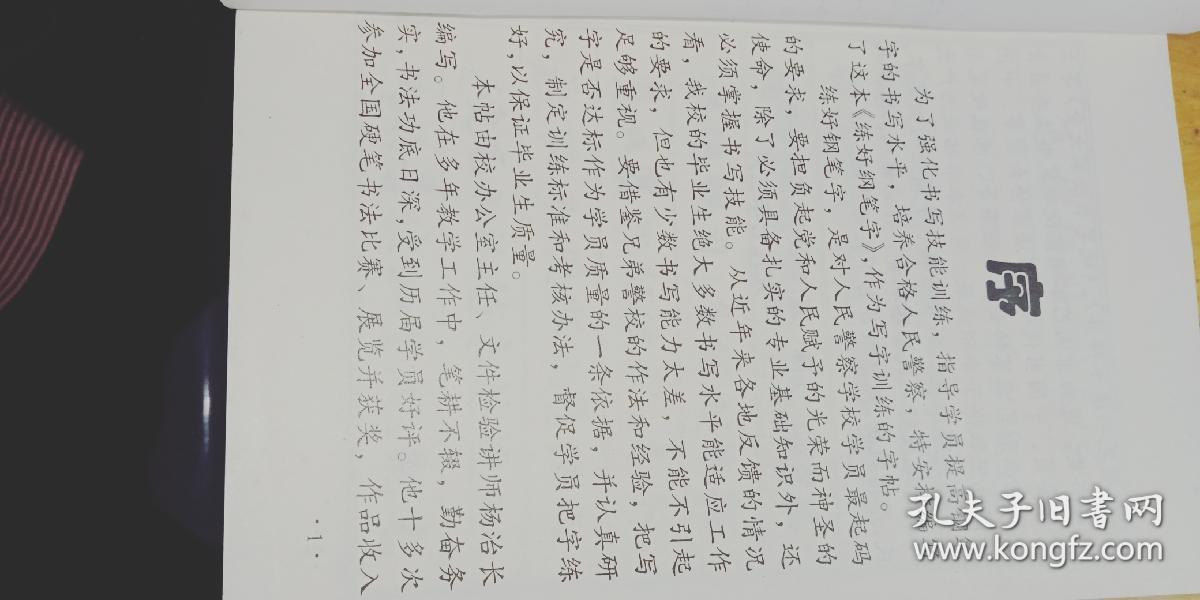 序
为了强化书写技能训练，指导学员提高钢
字的书写水平，培养合格人民警察，特安排编
了这本《练好钢笔字》，作为写字训练的字帖。
练好钢笔字，是对人民警察学校学员最起码
的要求，要担负起党和人民赋予的光荣而神圣的
使命，除了必须具备扎实的专业基础知识外，还
必须掌握书写技能。从近年来各地反馈的情况
看，我校的毕业生绝大多数书写水平能适应工作
的要求，但也有少数书写能力太差，不能不引起
足够重视。要借鉴兄弟警校的作法和经验，把写
字是否达标作为学员质量的一条依据，并认真研
究，制定训练标准和考核办法，督促学员把字练
好，以保证毕业生质量。
本帖由校办公室主任、文件检验讲师杨治长
编写。他在多年教学工作中，笔耕不辍，勤奋务
实，书法功底日深，受到历届学员好评。他十多次
参加全国硬笔书法比赛、展览并获奖，作品收入
·1·
孔夫子旧书网
www.kongfz.com